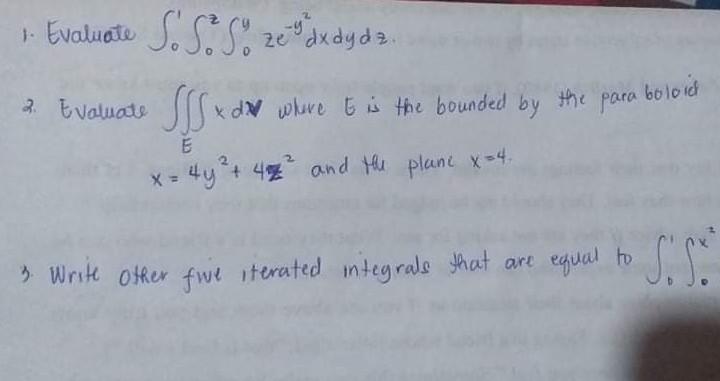 1. Evaluate ∫₀¹ ∫₀ᶻ ∫₀ʸ ze^(-y²) dx dy dz.
2. Evaluate ∭_E x dV where E is the bounded by the paraboloid
x = 4y² + 4z² and the plane x=4.
3. Write other five iterated integrals that are equal to ∫₀¹ ∫₀^(x²)